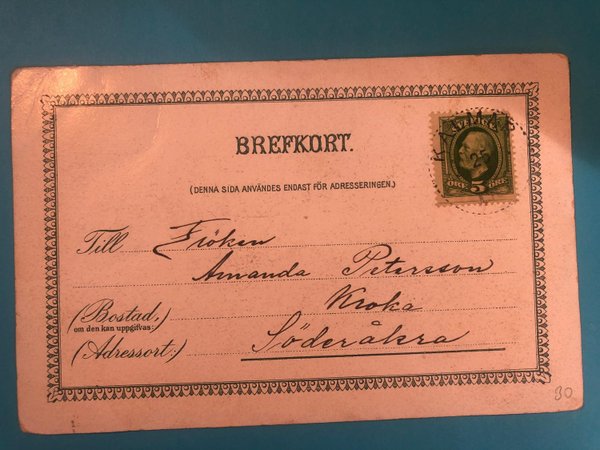 BREFKORT.
(DENNA SIDA ANVÄNDES ENDAST FÖR ADRESSERINGEN.)
KALMAR
27
SVERIGE
ÖRE 5 ÖRE
Till Fröken
Amanda Petersson
(Bostad,) Kroka
om den kan uppgifvas:
(Adressort:) Söderåkra
90